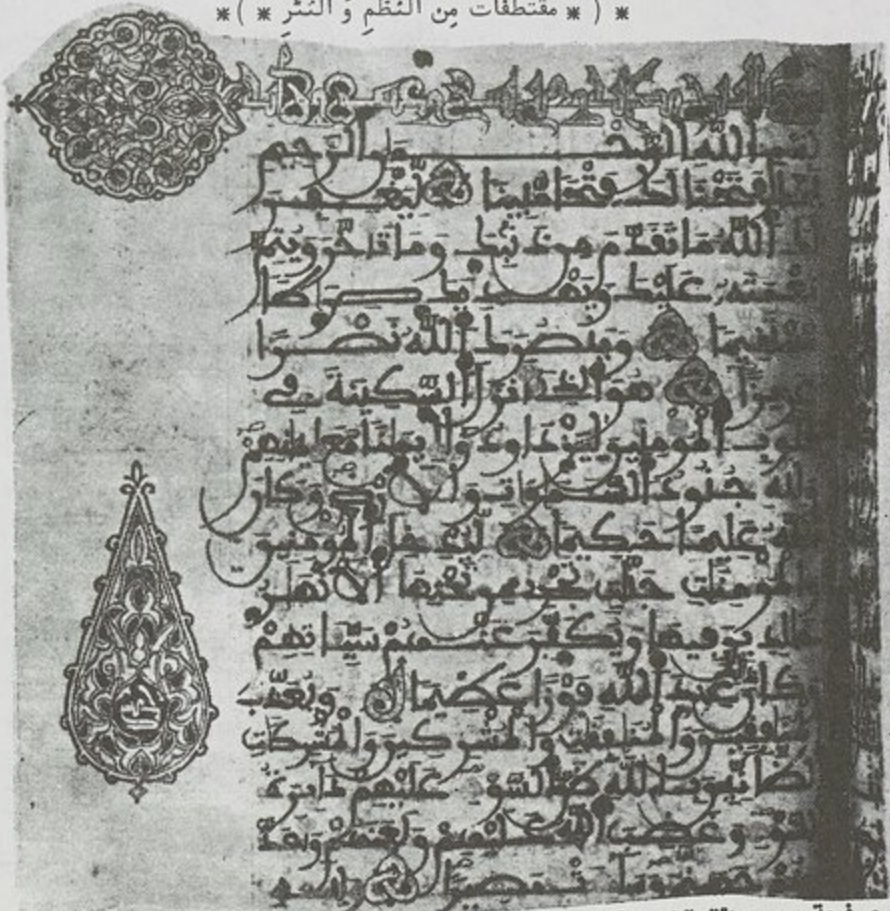 * ( * مقتطفات مِن النَّظْمِ وَ النَّثْرِ * ) *
بسم الله الرحمن الرحيم
إنا فتحنا لك فتحا مبينا ليغفر
لك الله ما تقدم من ذنبك وما تأخر ويتم
نعمته عليك ويهديك صراطا
مستقيما وينصرك الله نصرا
عزيزا هو الذي أنزل السكينة في
قلوب المومنين ليزدادوا إيمانا مع إيمانهم
ولله جنود السموات والارض وكان
الله عليما حكيما ليدخل المومنين
والمومنات جنات تجري من تحتها الانهار
خالدين فيها ويكفر عنهم سيئاتهم
وكان عند الله فوزا عظيما ويعذب
المنافقين والمنافقات والمشركين والمشركات
الظانين بالله ظن السوء عليهم دايرة
السوء وغضب الله عليهم ولعنهم وأعد
لهم جهنم وساءت مصيرا